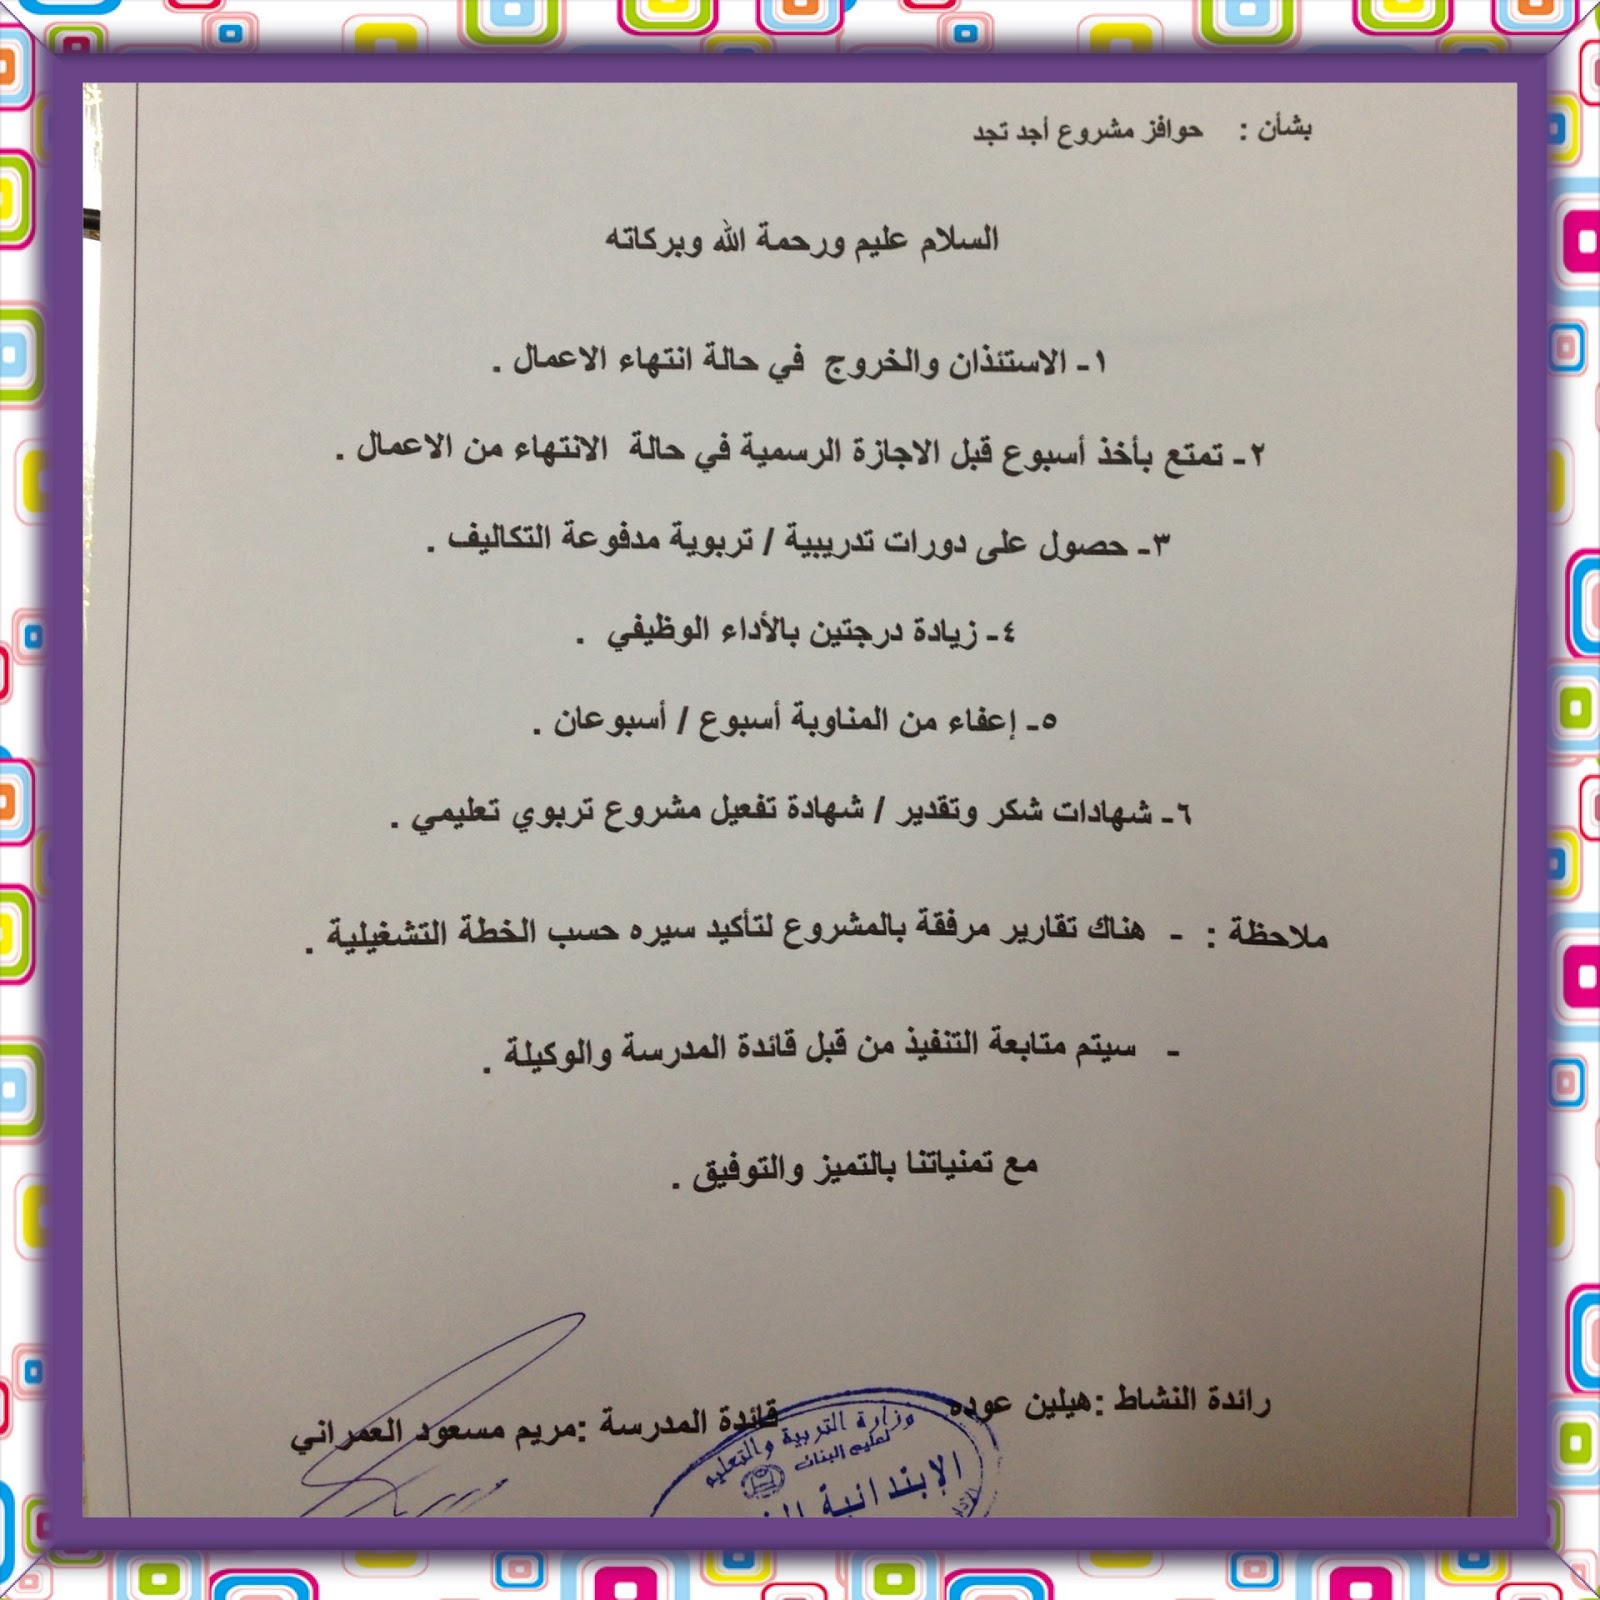 بشأن : حوافز مشروع أجد تجد
السلام عليم ورحمة الله وبركاته
١- الاستئذان والخروج في حالة انتهاء الاعمال .
٢- تمتع بأخذ أسبوع قبل الاجازة الرسمية في حالة الانتهاء من الاعمال .
٣- حصول على دورات تدريبية / تربوية مدفوعة التكاليف .
٤- زيادة درجتين بالأداء الوظيفي .
٥- إعفاء من المناوبة أسبوع / أسبوعان .
٦- شهادات شكر وتقدير / شهادة تفعيل مشروع تربوي تعليمي .
ملاحظة : - هناك تقارير مرفقة بالمشروع لتأكيد سيره حسب الخطة التشغيلية .
- سيتم متابعة التنفيذ من قبل قائدة المدرسة والوكيلة .
مع تمنياتنا بالتميز والتوفيق .
رائدة النشاط :هيلين عوده
قائدة المدرسة :مريم مسعود العمراني
وزارة التربية والتعليم
لتعليم البنات
الإبتدائية